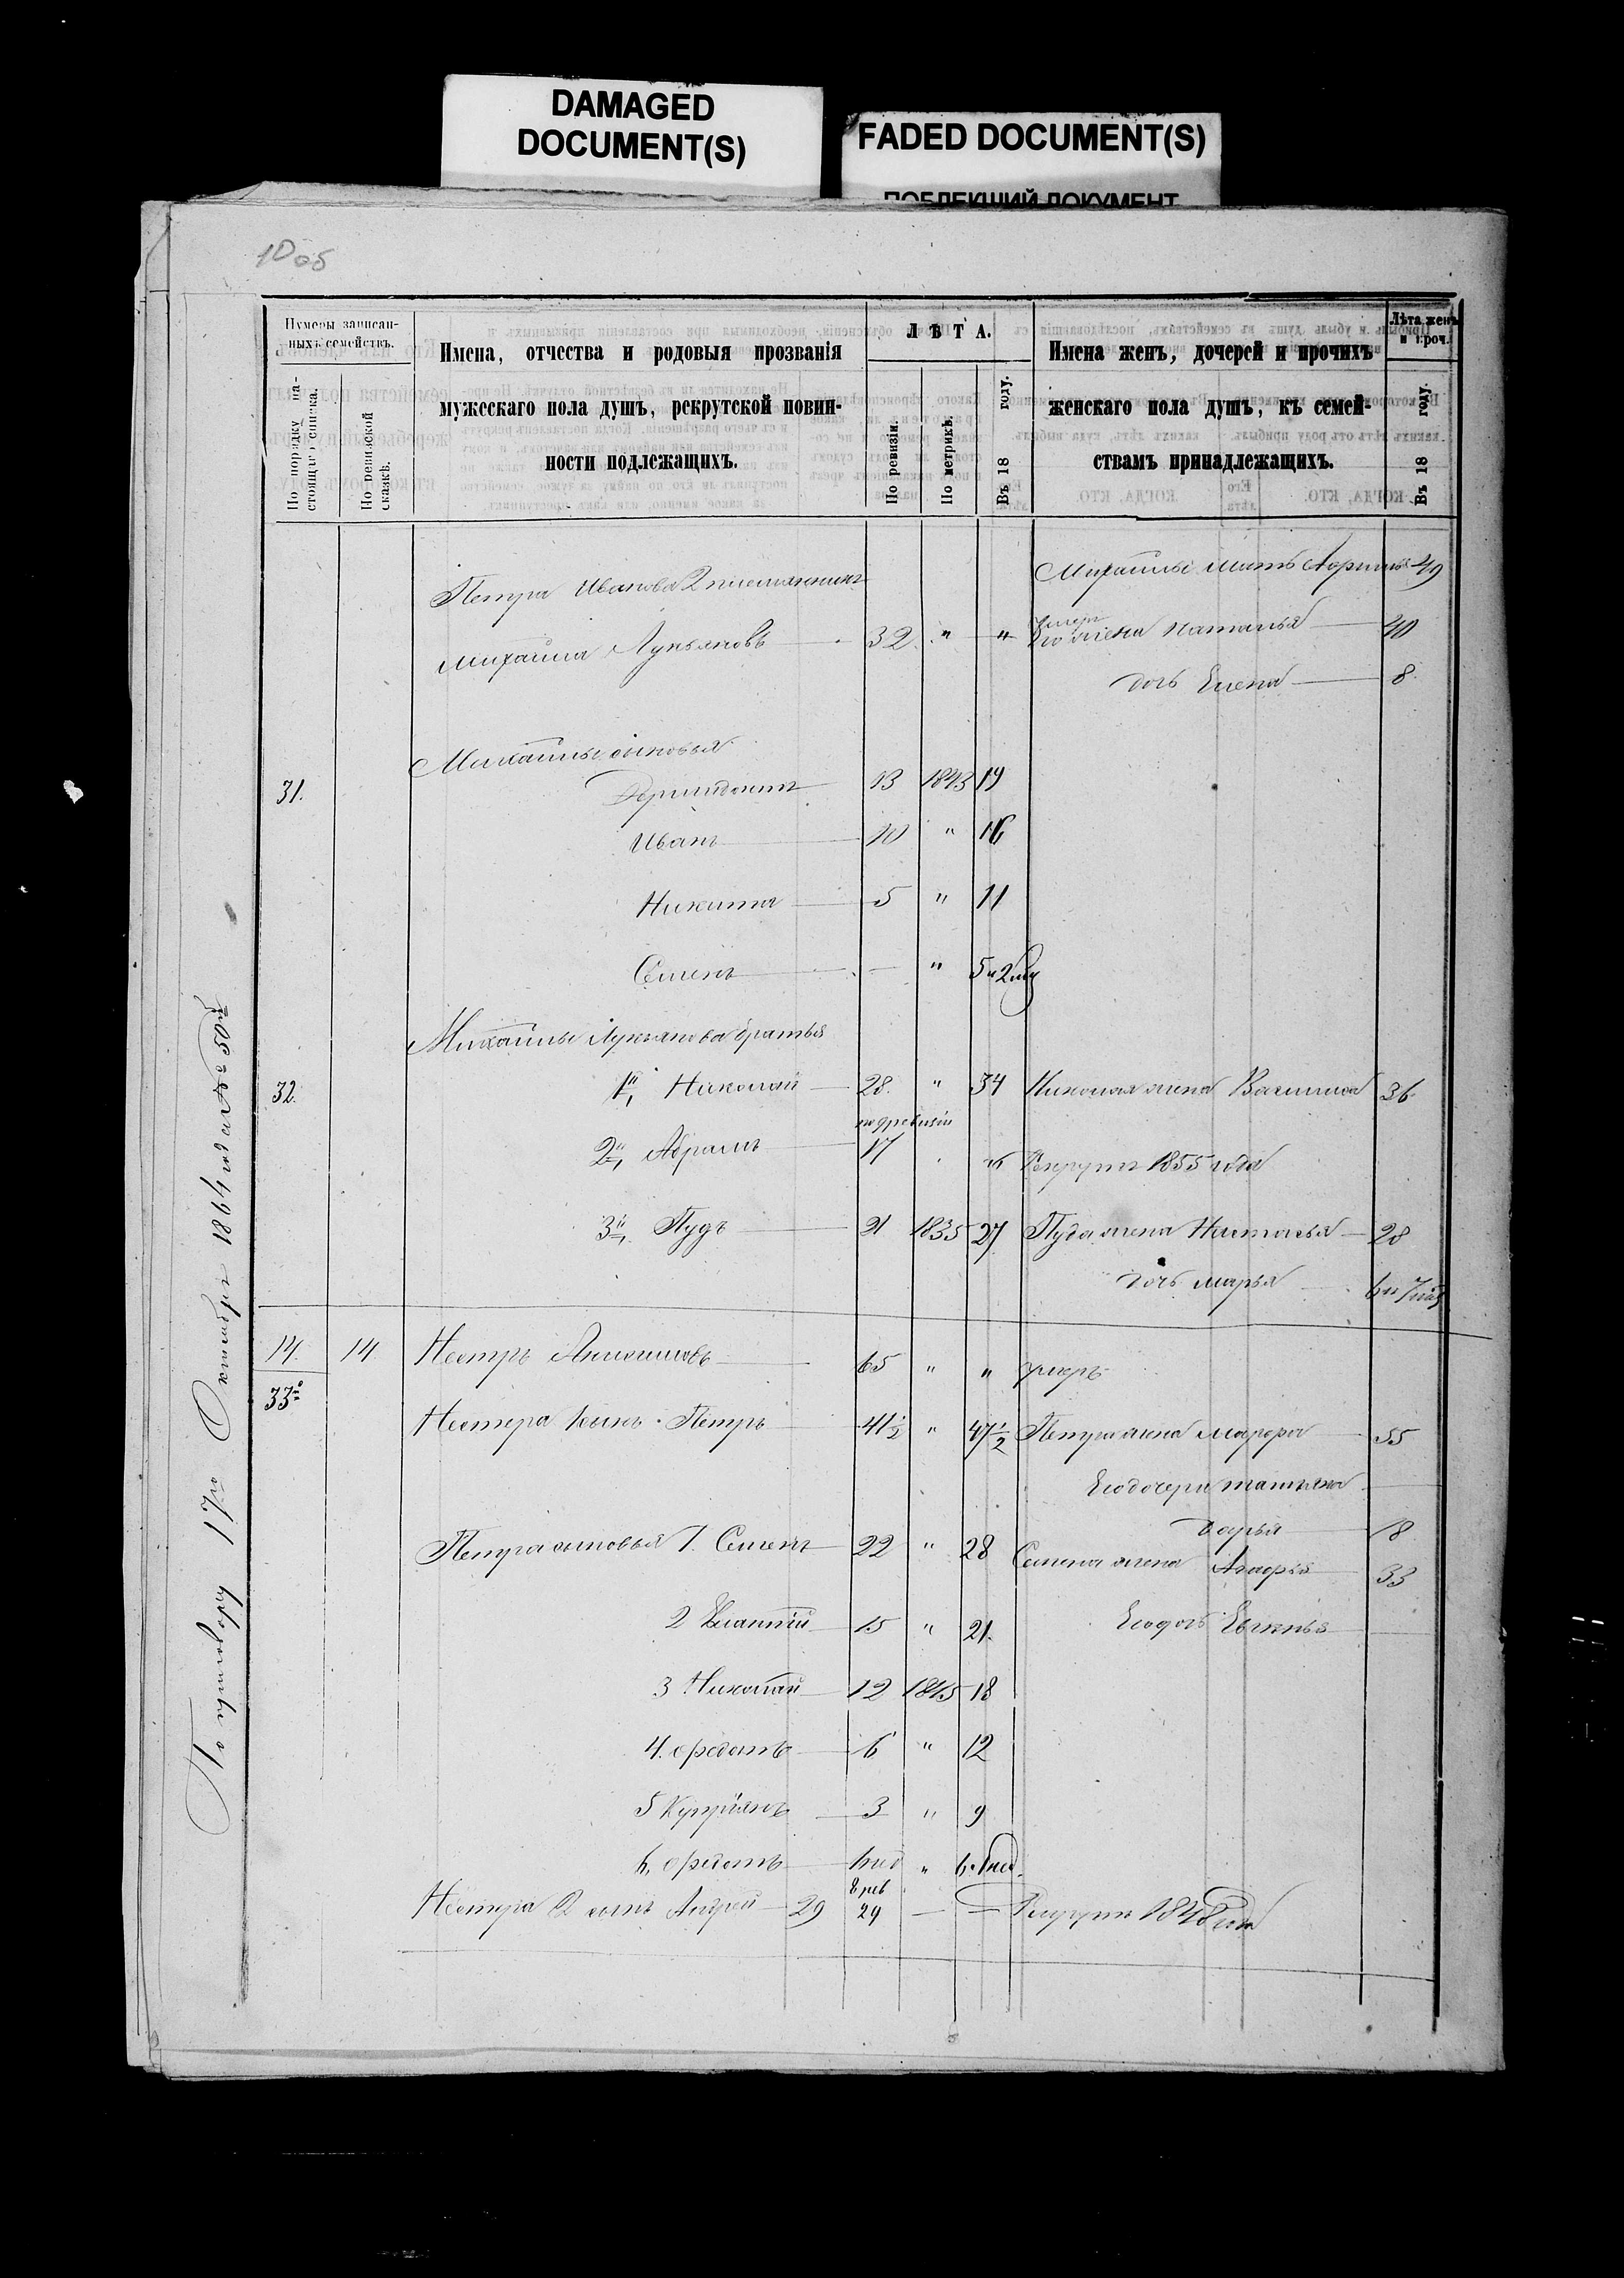 DAMAGED
DOCUMENT(S)
FADED DOCUMENT(S)
ПОБЛЕКШИЙ ДОКУМЕНТ
10 об
Нумеры записан-
ныхъ семействъ.
По порядку на-
стоящаго списка.
По ревизской
сказкѣ.
Имена, отчества и родовыя прозванія
мужескаго пола душъ, рекрутской повин-
ности подлежащихъ.
ЛѢТА.
По ревизіи.
По метрикѣ.
Въ 18 году.
Имена женъ, дочерей и прочихъ
женскаго пола душъ, къ семей-
ствамъ принадлежащихъ.
Лѣта женъ
и проч.
Въ 18 году.
Петра Иванова 2 племянникъ
Михайлы мать 49
Михайла Лукьяновъ 32 " " жена Наталья 40
дочь Елена 8
Михайлы сыновья
31. 13 1843 19
Иванъ 10 " 16
Никита 5 " 11
Семенъ — " 5 и 2 мѣс
Михайлы Лукьянова братья
32. 1й, Николай 28. " 34 Николая жена Василиса 36
2й, Абрамъ 17 " Рекрутъ 1855 года
3й, Пудъ 21 1835 27 Пуда жена Наталья 28
дочь Марья 6 и 7 мѣс
14. 14 Нестръ 65 " " умеръ
33й
Нестера сынъ Петръ 41½ " 47½ Петра жена Марфа 55
Его дочери Татьяна
Дарья 18
Петра сыновья 1. Семенъ 22 " 28 Семена жена 33
2 15 " 21. Его дочь Евгенья
3 Николай 12 1845 18
4. Федотъ 6 " 12
5 Купріянъ 3 " 9
6, Федотъ "
8 рев
Нестера 2 сынъ Андрей 29 29 — — Рекрутъ 1848 года
По приговору 17го Октября 1864 года № 50й